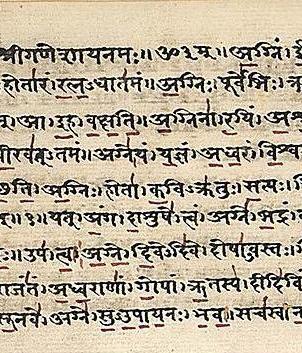 श्रीगणेशायनमः॥ ॐ३म्॥ अग्निं।
होतारं। रत्नऽधातमं॥ अग्निः। पूर्वेभिः।
आ। इह। वक्षति॥ अग्निना। रयिं।
वीरवत्ऽतमं॥ अग्ने। यं। यज्ञं। अध्वरं।
अग्निः। होता। कविऽक्रतुः। सत्यः।
यत्। अंग। दाशुषे। त्वं। अग्ने। भद्रं।
उप। त्वा। अग्ने। दिवेऽदिवे। दोषाऽवस्तः।
राजंतं। अध्वराणां। गोपां। ऋतस्य।
सूनवे। अग्ने। सुऽउपायनः। भव॥ सचस्व।